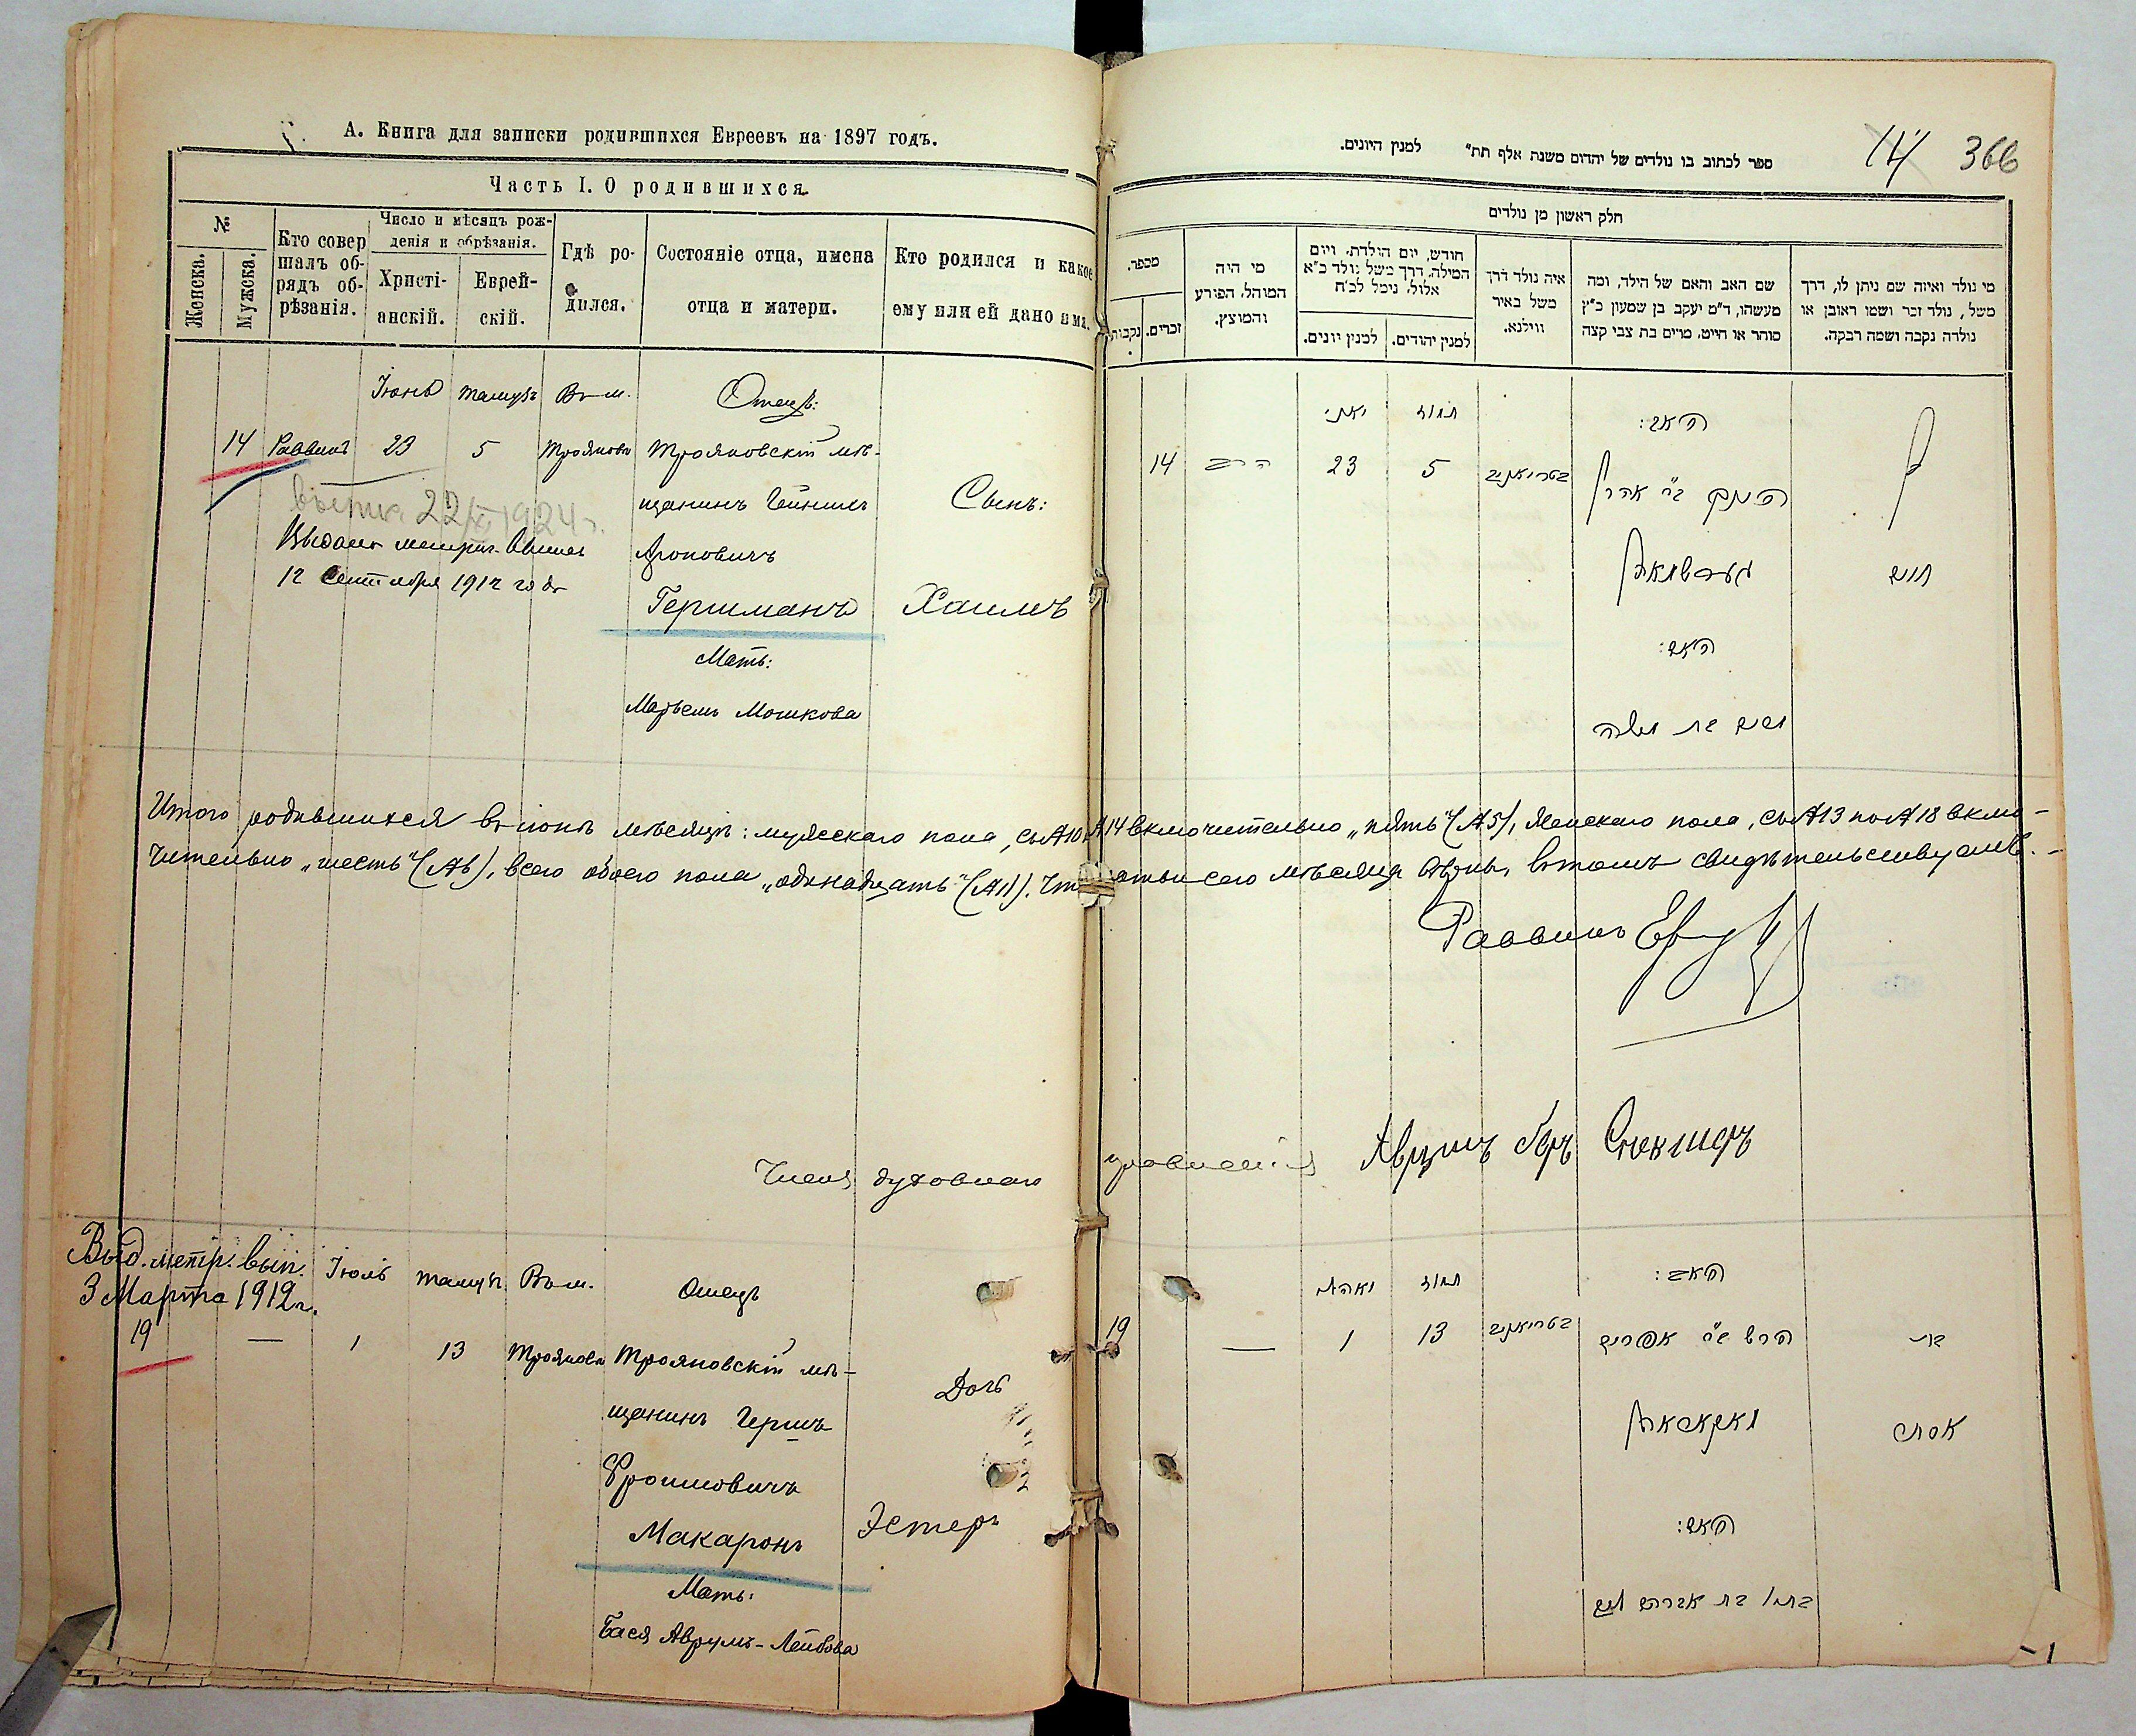 А. Книга для записки родившихся Евреевъ на 1897 годъ.
Часть I. О родившихся
№
Женска.
Мужска.
Кто совер
шалъ об-
рядъ об-
рѣзанія.
Число и мѣсяцъ рож-
денія и обрѣзанія.
Христі-
анскій.
Еврей-
скій.
Гдѣ ро-
дился.
Состояніе отца, имена
отца и матери.
Кто родился и какое
ему или ей дано имя.
Іюнь Тамузъ Въ м. Отецъ:
14 Раввинъ 23 5 Трояновъ Трояновскій мѣ-
щанинъ Гейнихъ Сынъ:
22/XI 1924 г.
Выдано метрич.
Ароновичъ
12 Сентября 1912 года
Гершманъ Хаимъ
Мать:
Марьемъ Мошкова
Итого родившихся въ іюнѣ мѣсяцѣ: мужескаго пола, съ №10 №14 включительно „пять" (№5), женскаго пола, съ №13 по №18 вклю-
чительно „шесть" (№6), всего обоего пола „одинадцать" (№11). сего мѣсяца вѣрны, въ томъ свидѣтельствуемъ.-
Раввинъ
Членъ духовнаго правленія Аврумъ Беръ
Выд. метр. вып.
3 Марта 1912 г.
Іюль Тамузъ Въ м. Отецъ
19 — 1 13 Трояновъ Трояновскій мѣ-
щанинъ Гершъ Дочь
Фроимовичъ
Макаронъ Эстеръ
Мать:
Бася Аврумъ-Лейбова
ספר לכתוב בו נולדים של יהדום משנת אלף תת״ למנין היונים.
14 366
חלק ראשון מן נולדים
מי נולד ואיזה שם ניתן לו, דרך
משל, נולד זכר ושמו ראובן או
נולדה נקבה ושמה רבקה.
שם האב והאם של הילד, ומה
מעשהו, ד״מ יעקב בן שמעון כ״ץ
סוחר או חייט, מרים בת צבי קצה
איה נולד דרך
משל באיר
ווילנא.
חודש, יום הולדת, ויום
המילה, דרך משל נולד כ״א
אלול, נימל לכ״ח
למנין יהודים.
למנין יונים.
מי היה
המוהל, הפורע
והמוצץ.
מספר.
זכרים.
נקבות
האב: תמוז יאני
14 הרב 23 5 בטריאניב ר׳ אהרן
גערשמאן חיים
האם:
מרים בת משה
האב: תמוז
19 — 1 13 בטריאניב הירש ב״ר אפרים בת
מאקאראן אסתר
האם:
בת אברהם ליב